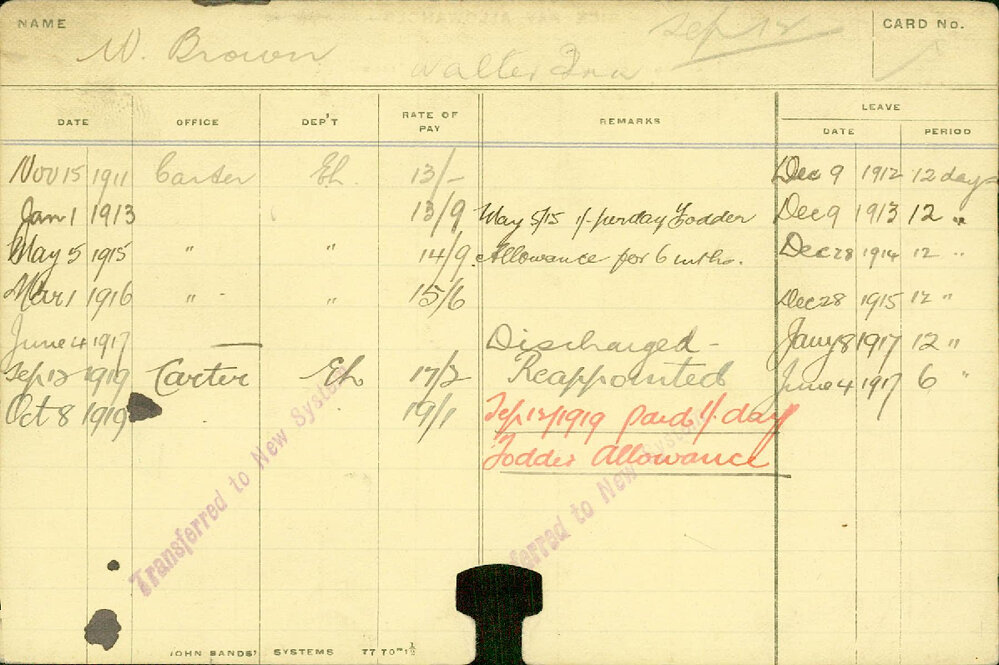 NAME W. Brown Sep 12 CARD No.
Walter
DATE OFFICE DEP'T RATE OF PAY REMARKS LEAVE
DATE PERIOD
Nov 15 1911 Carter Eh. 13/- Dec 9 1912 12 days
Jan 1 1913 13/9 May 5/15 1/- per day Fodder Dec 9 1913 12 "
May 5 1915 " " 14/9 Allowance for 6 mths. Dec 28 1914 12 "
Mar 1 1916 " " 15/6 Dec 28 1915 12 "
June 4 1917 — Discharged - Jany 8 1917 12 "
Sep 12 1919 Carter Eh 17/2 Reappointed June 4 1917 6 "
Oct 8 1919 19/1 Sep 12/1919 paid 1/- day
Fodder Allowance
Transferred to New System
ferred to New System
JOHN SANDS' SYSTEMS